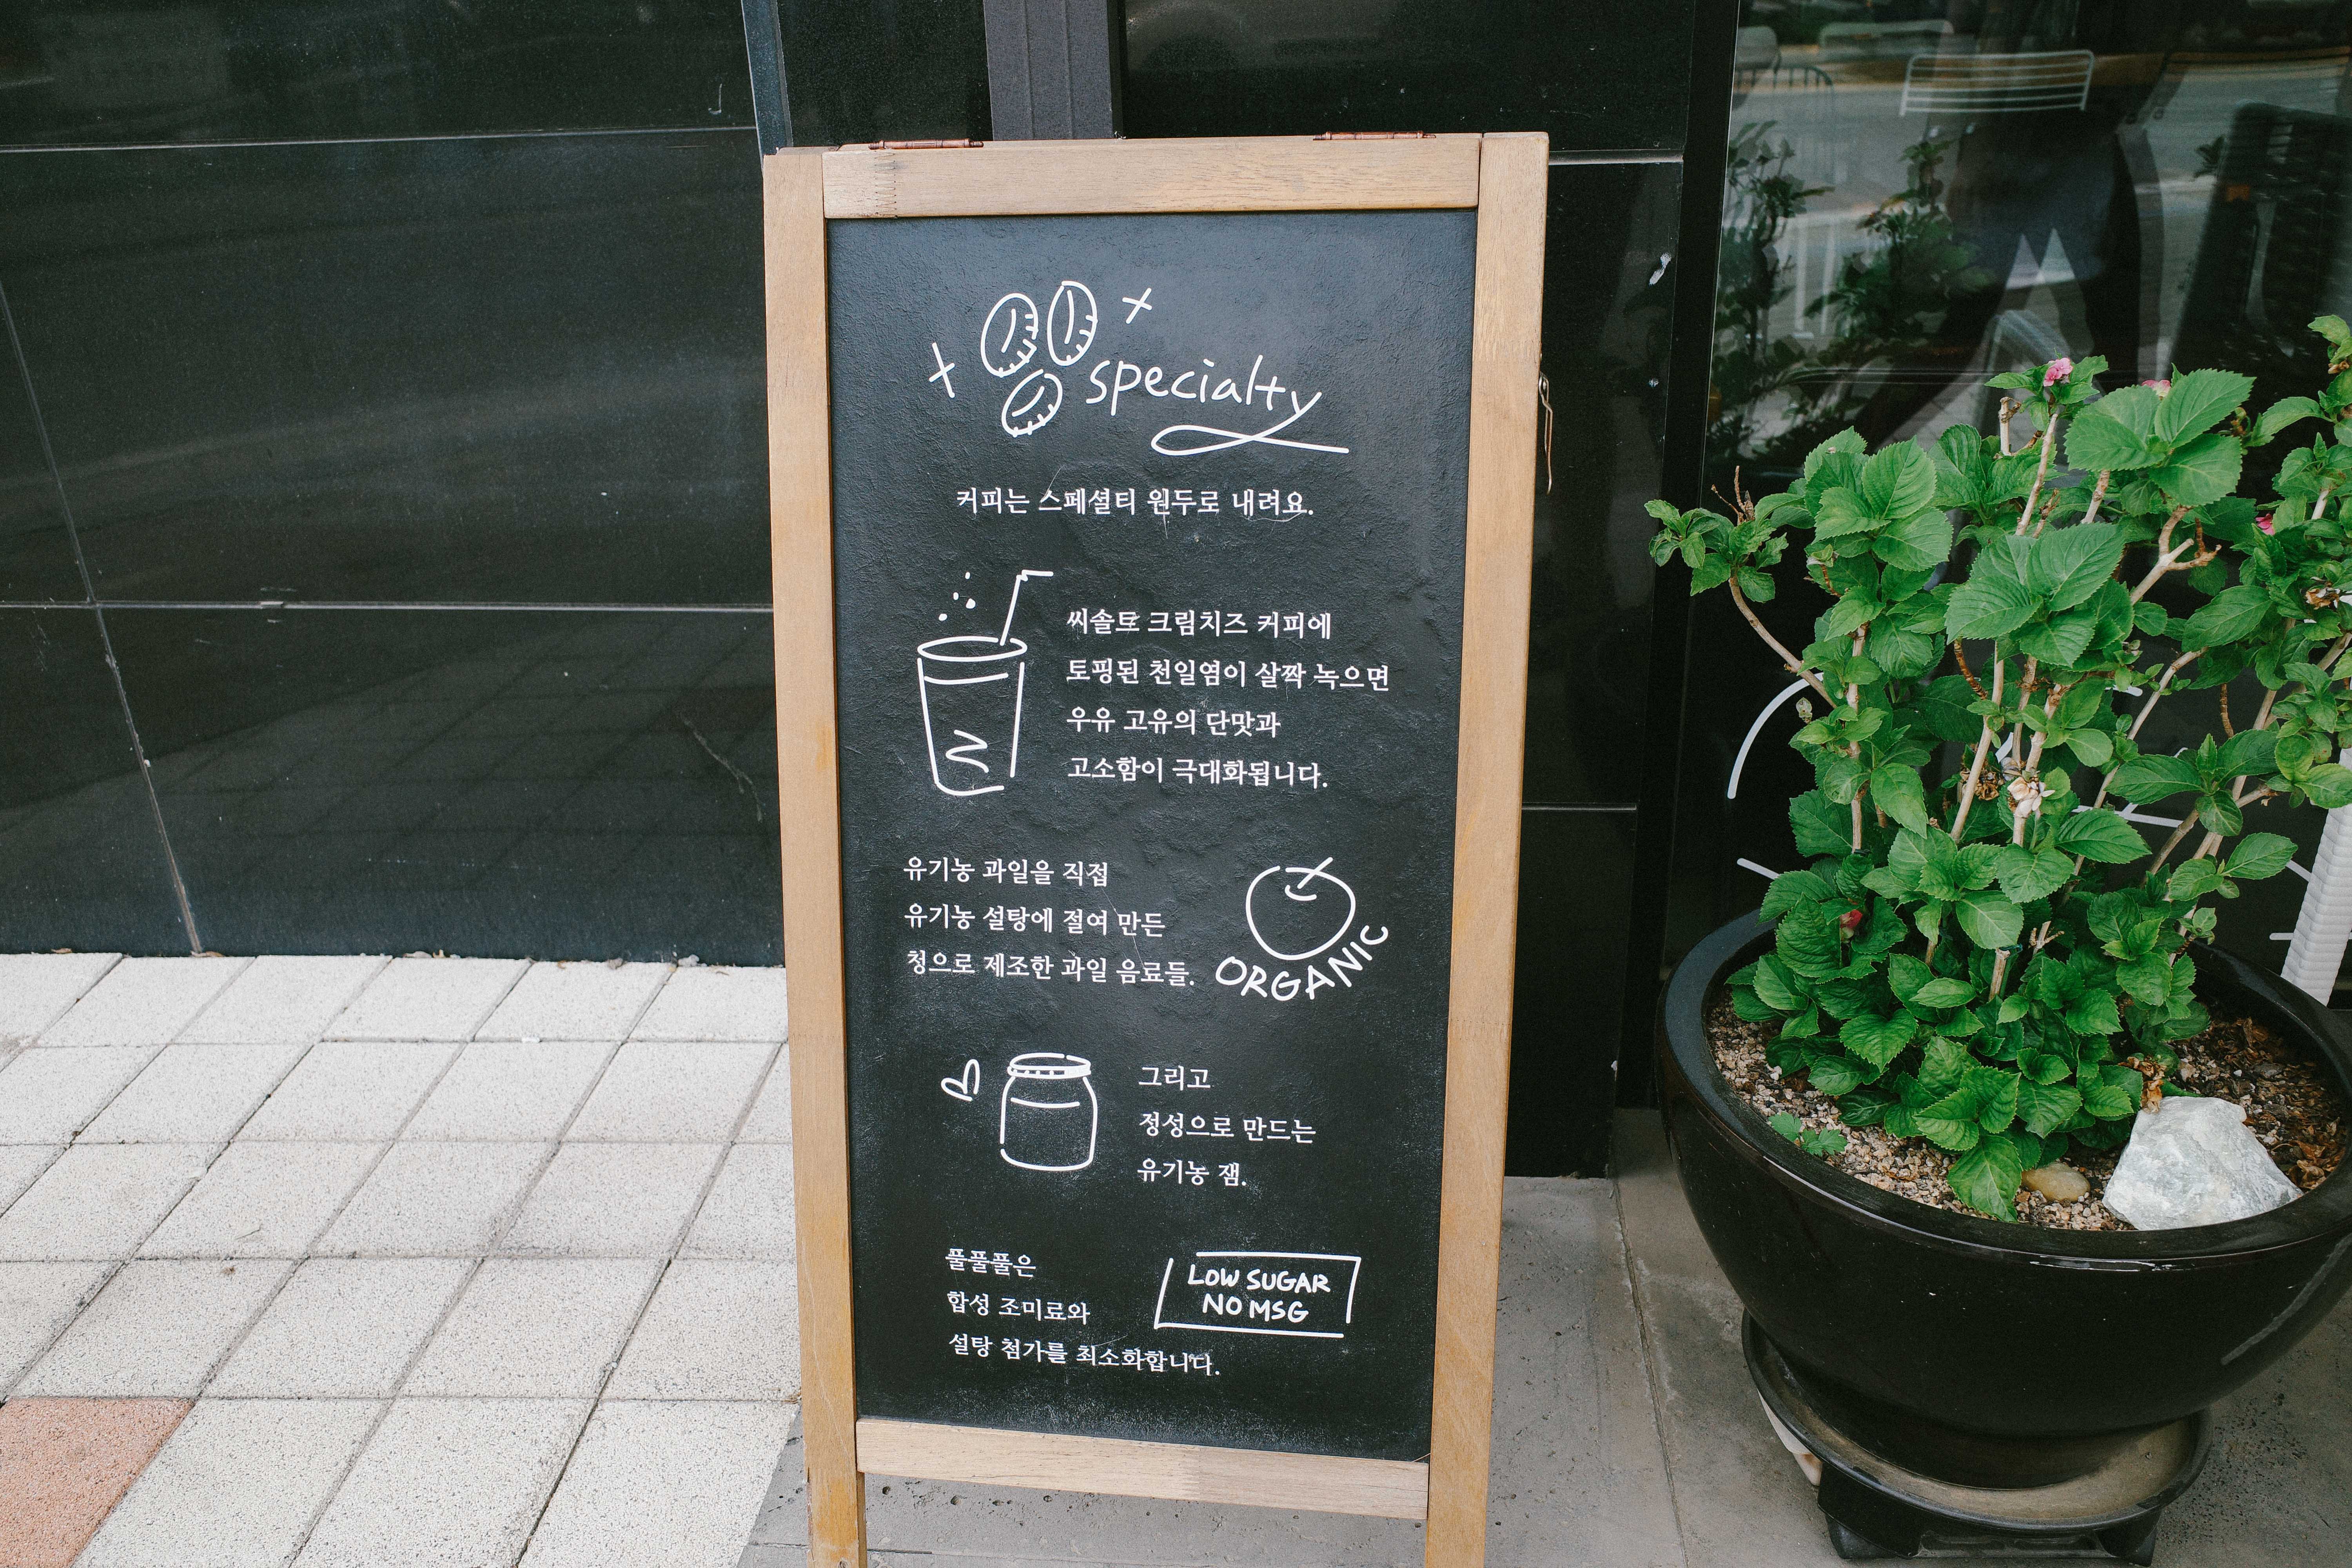 specialty
커피는 스페셜티 원두로 내려요.
씨솔트 크림치즈 커피에
토핑된 천일염이 살짝 녹으면
우유 고유의 단맛과
고소함이 극대화됩니다.
유기농 과일을 직접
유기농 설탕에 절여 만든
청으로 제조한 과일 음료들.
ORGANIC
그리고
정성으로 만드는
유기농 잼.
풀풀풀은
합성 조미료와
설탕 첨가를 최소화합니다.
LOW SUGAR
NO MSG